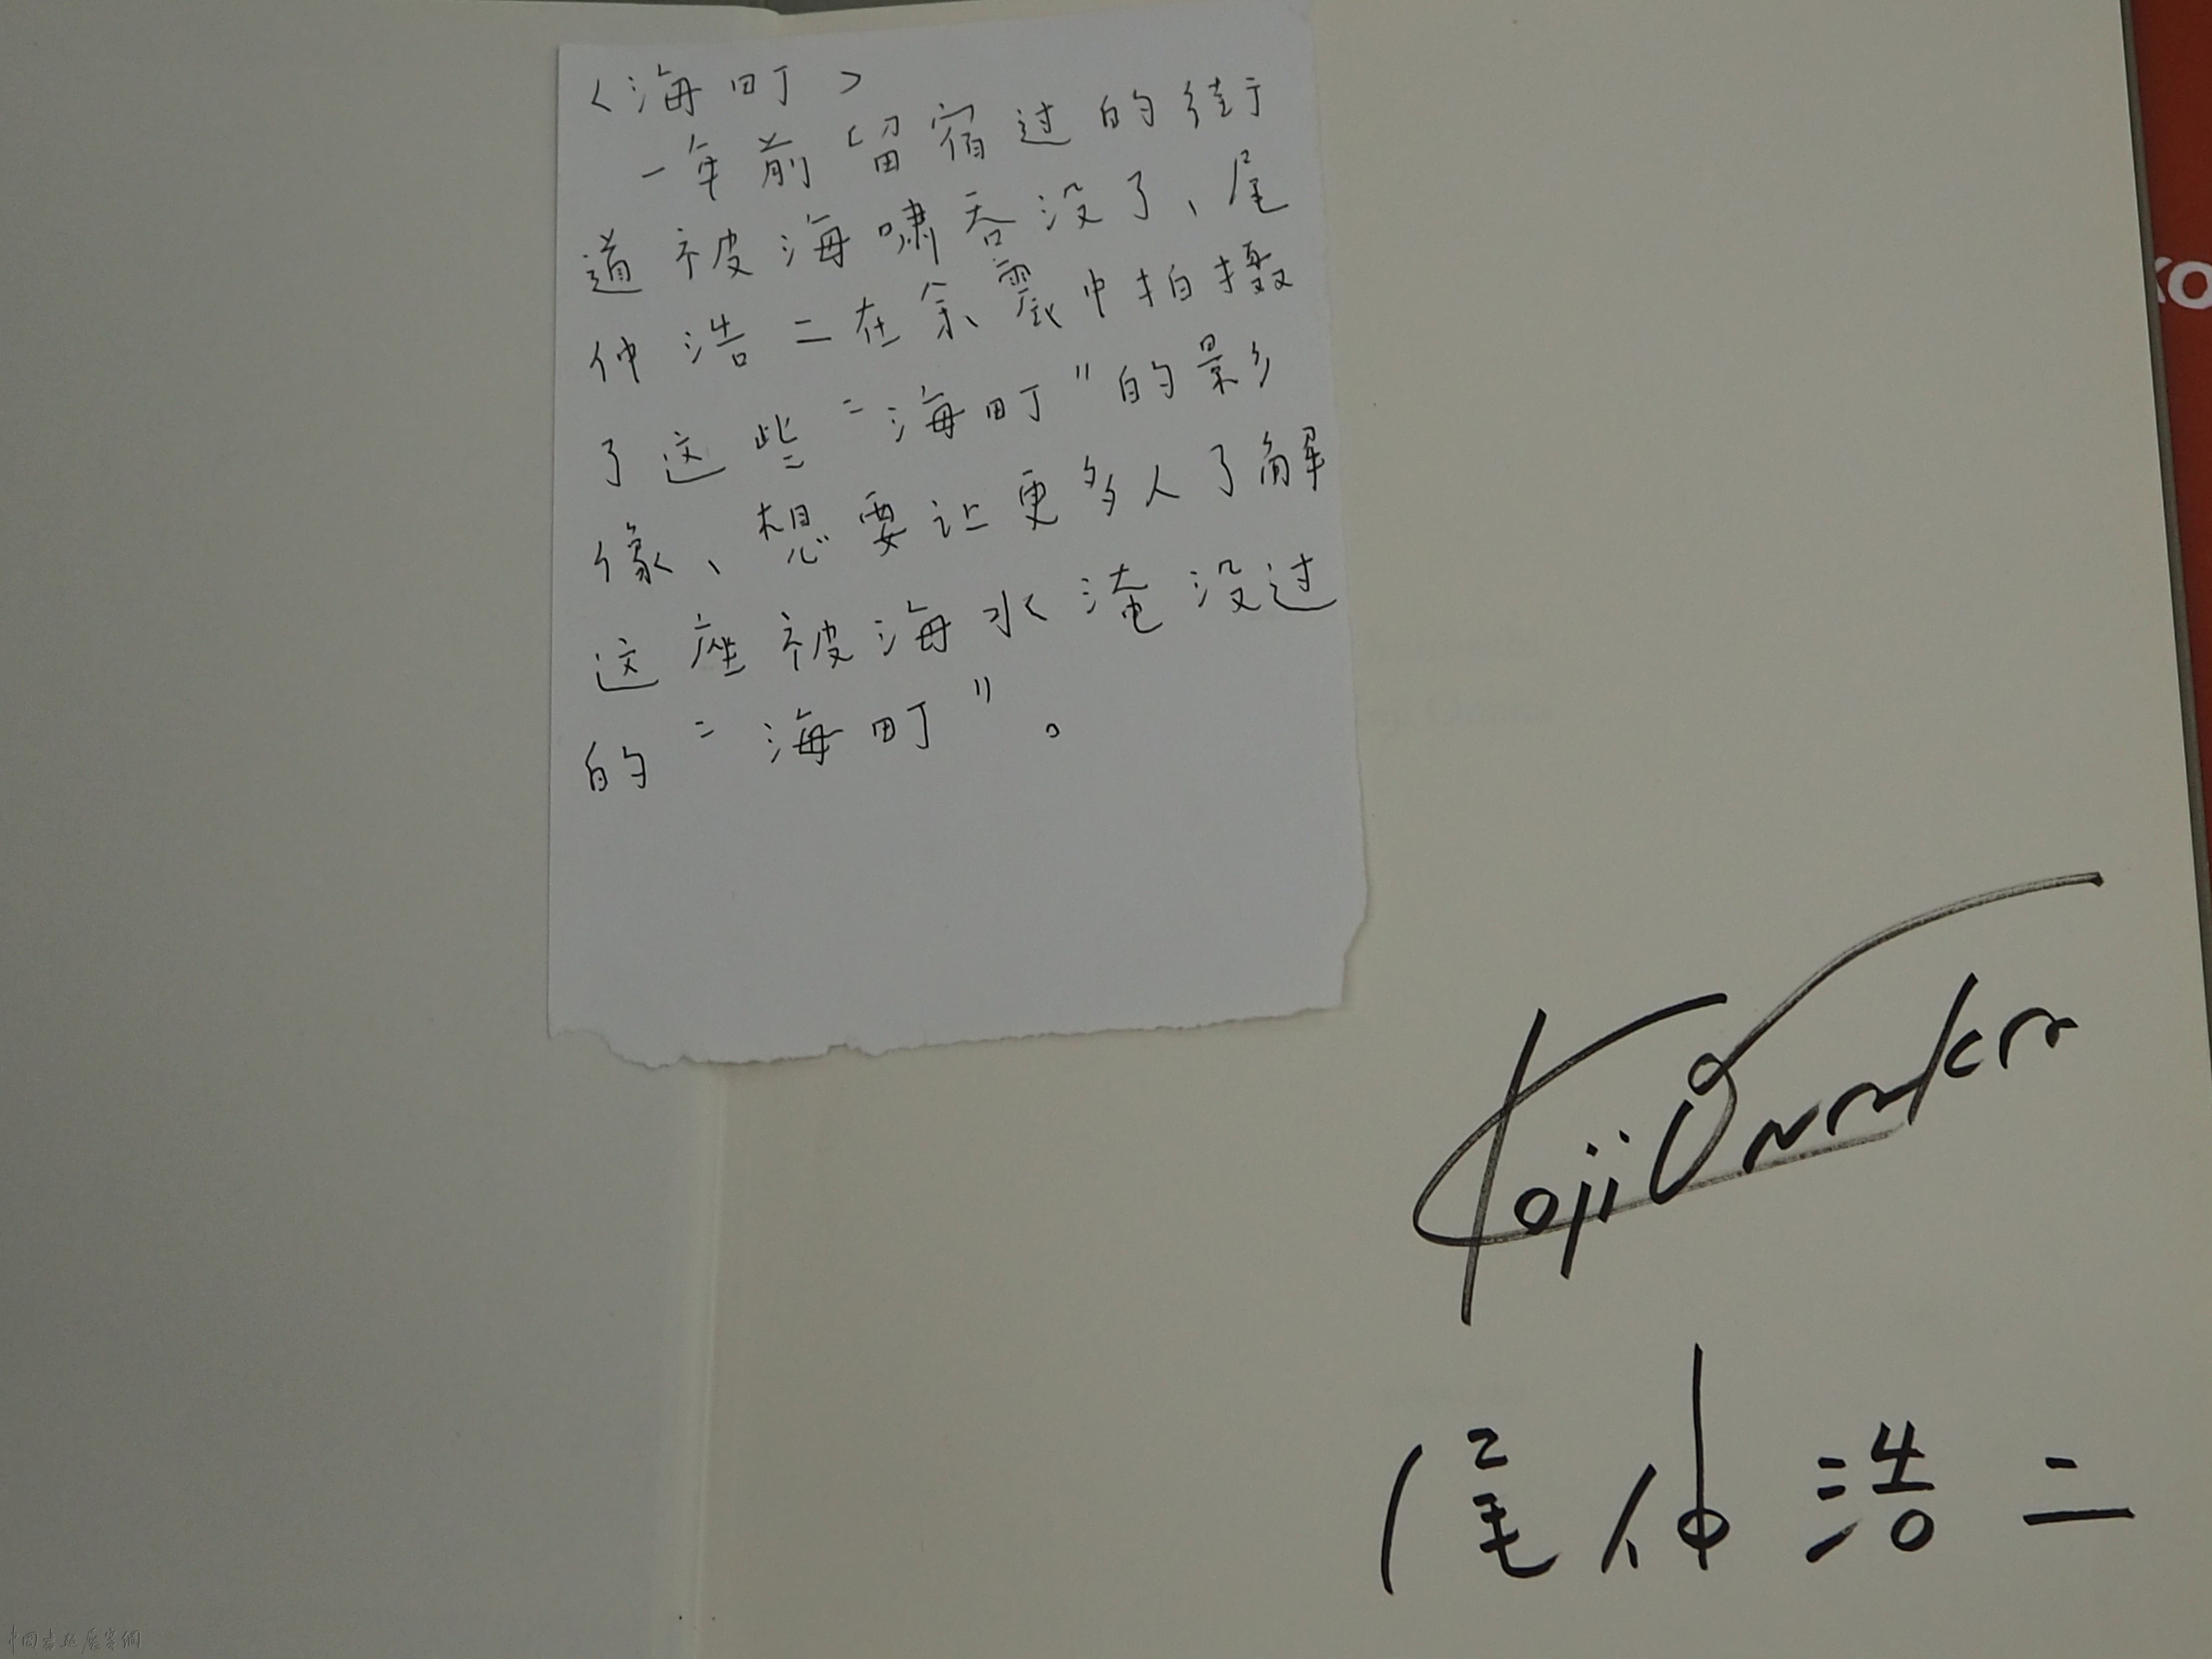 〈海町〉
一年前留宿过的街
道被海啸吞没了、尾
仲浩二在余震中拍摄
了这些“海町”的影
像、想要让更多人了解
这座被海水淹没过
的“海町”。
KO
Koji Onaka
尾仲浩二